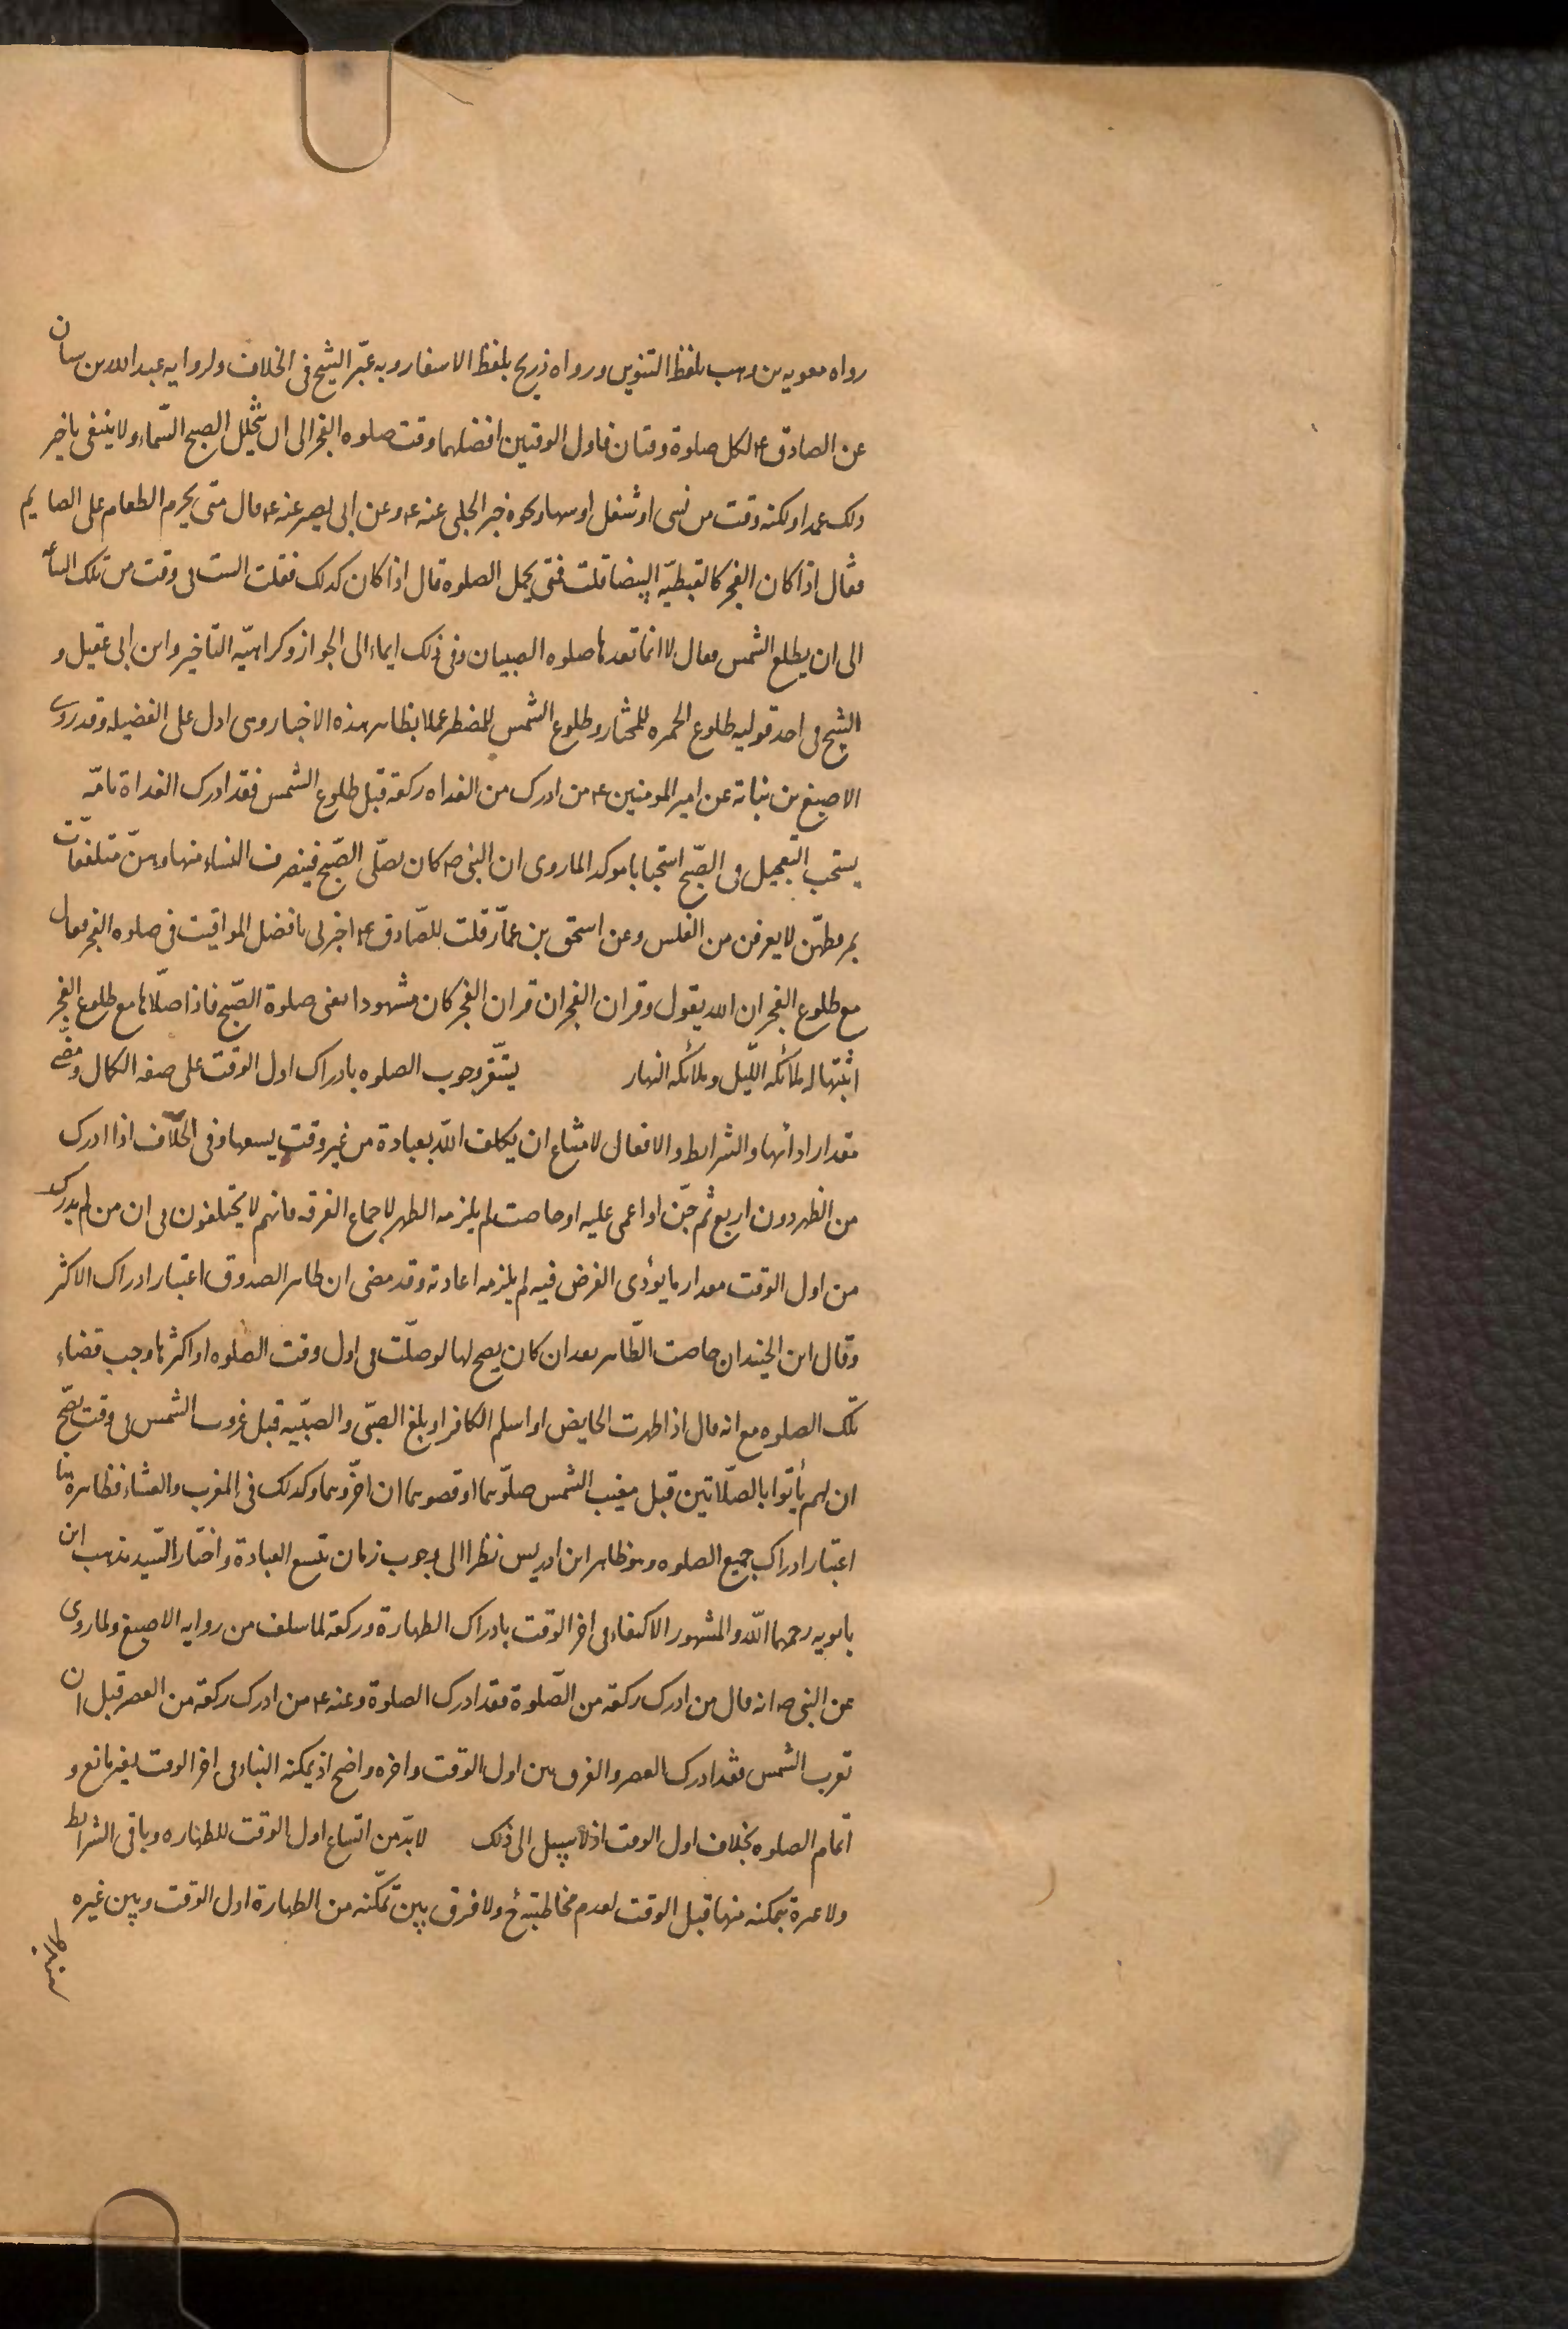 رواه معويه بن وهب بلفظ التنوير ورواه ذريح بلفظ الاسفار وبه عبّر الشيخ فى الخلاف ولروايه عبد الله بن سنان
عن الصادق ع لكل صلوة وقتان فاول الوقتين افضلهما وقت صلوه الفجر الى ان يتجلل الصبح السّماء ولا ينبغى تاخير
ذلك عمدا ولكنه وقت من نسى او شغل او سها ونحوه خبر الحلبى عنه ع وعن ابى بصير عنه ع قال متى يحرم الطعام على الصايم
فقال اذا كان الفجر كالقبطيّه البيضا قلت فمتى يحل الصلوه قال اذا كان كذلك فقلت الست فى وقت من تلك الساعة
الى ان يطلع الشمس فقال لا انما تعدها صلوه الصبيان وفى ذلك ايماء الى الجواز وكراهيّه التاخير وابن ابى عقيل و
الشيخ فى احد قوليه طلوع الحمره للمختار وطلوع الشمس للمضطر عملا بظاهر هذه الاخبار وهى ادل على الفضيله وقد روى
الاصبغ بن نباتة عن امير المومنين ع من ادرك من الغداه ركعة قبل طلوع الشمس فقد ادرك الغداة تامّه
يستحب التعجيل فى الصّبح استحبابا موكدا لما روى ان النبى ص كان يصلّى الصّبح فينصرف النساء منها وهنّ متلفعات
بمروطهن لا يعرفن من الغلس وعن اسحق بن عمّار قلت للصّادق ع اخبرنى بافضل المواقيت فى صلوه الفجر فقال
مع طلوع الفجر ان الله يقول وقران الفجر ان قران الفجر كان مشهودا يعنى صلوة الصّبح فاذا صلّاها مع طلوع الفجر
اثبتها له ملائكه اللّيل وملائكه النهار يستقر وجوب الصلوه بادراك اول الوقت على صفه الكمال ومضى
مقدار ادائها والشرايط والافعال لامتناع ان يكلف اللّه بعبادة من غير وقت يسعها وفى الخلاف اذا ادرك
من الظهر دون اربع ثم جنّ او اغمى عليه او حاضت لم يلزمه الظهر لاجماع الفرقه فانهم لا يختلفون فى ان من لم يدرك
من اول الوقت مقدار ما يؤدى الفرض فيه لم يلزمه اعادته وقد مضى ان ظاهر الصدوق اعتبار ادراك الاكثر
وقال ابن الجنيد ان حاضت الطّاهر بعد ان كان يصح لها لو صلّت فى اول وقت الصلوه او اكثرها وجب قضاء
تلك الصلوه مع انه قال اذا طهرت الحايض او اسلم الكافر او بلغ الصبّى والصبّيه قبل غروب الشمس فى وقت يصّح
ان لهم يأتوا بالصّلاتين قبل مغيب الشمس صلّوهما او قضوهما ان اخّروهما وكذلك فى المغرب والعشاء فظاهره هنا
اعتبار ادراك جميع الصلوه وهو ظاهر ابن ادريس نظرا الى وجوب زمان يتسع العبادة واختار السّيد مذهب ابن
بابويه رحمهما اللّه والمشهور الاكتفاء فى اخر الوقت بادراك الطهارة وركعة لما سلف من روايه الاصبغ ولما روى
عن النبى ص انه قال من ادرك ركعة من الصّلوة فقد ادرك الصلوة وعنه ع من ادرك ركعة من العصر قبل ان
تغرب الشمس فقد ادرك العصر والفرق بين اول الوقت واخره واضح اذ يمكنه البناء فى اخر الوقت بغير مانع و
اتمام الصلوه بخلاف اول الوقت اذ لا سبيل الى ذلك لا بدّ من اتساع اول الوقت للطهاره وباقى الشرايط
ولا عبرة بتمكنه منها قبل الوقت لعدم مخاطبته ح ولا فرق بين تمكّنه من الطهارة اول الوقت وبين غيره